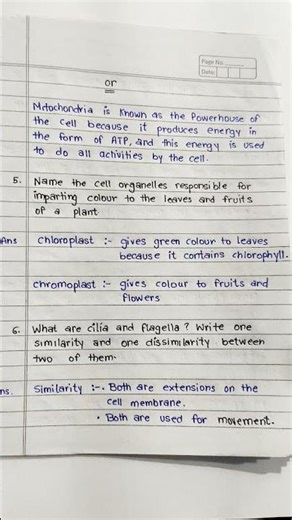 Page No.
Date:
or
Mitochondria is known as the Powerhouse of
the cell because it produces energy in
the form of ATP, and this energy is used
to do all activities by the cell.
5. Name the cell organelles responsible for
imparting colour to the leaves and fruits
of a plant
Ans chloroplast :- gives green colour to leaves
because it contains chlorophyll.
chromoplast :- gives colour to fruits and
flowers
6. What are cilia and flagella ? Write one
similarity and one dissimilarity between
two of them.
ns. Similarity :- • Both are extensions on the
cell membrane.
• Both are used for movement.